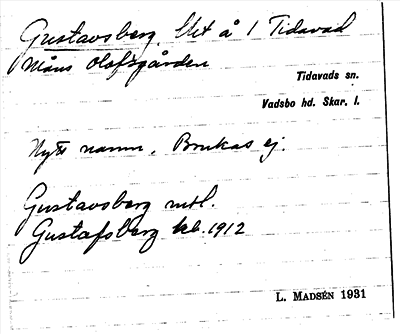 Gustavsberg, Lht å 1 Tidavad
Måns Olofsgården
Tidavads sn.
Vadsbo hd. Skar. l.
Nytt namn. Brukas ej.
Gustavsberg mtl.
Gustafsberg kb. 1912
L. MADSÉN 1931